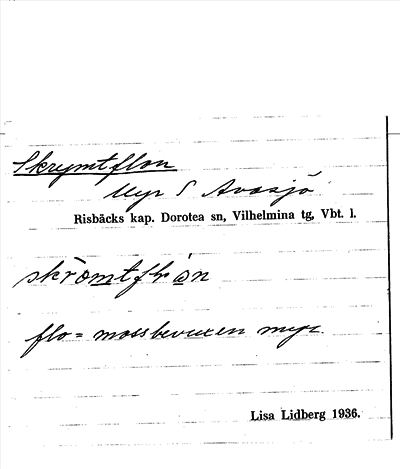 Skrymtflon
Myr S Avasjö
Risbäcks kap. Dorotea sn, Vilhelmina tg, Vbt. l.
flo = mossbevuxen myr.
Lisa Lidberg 1936.